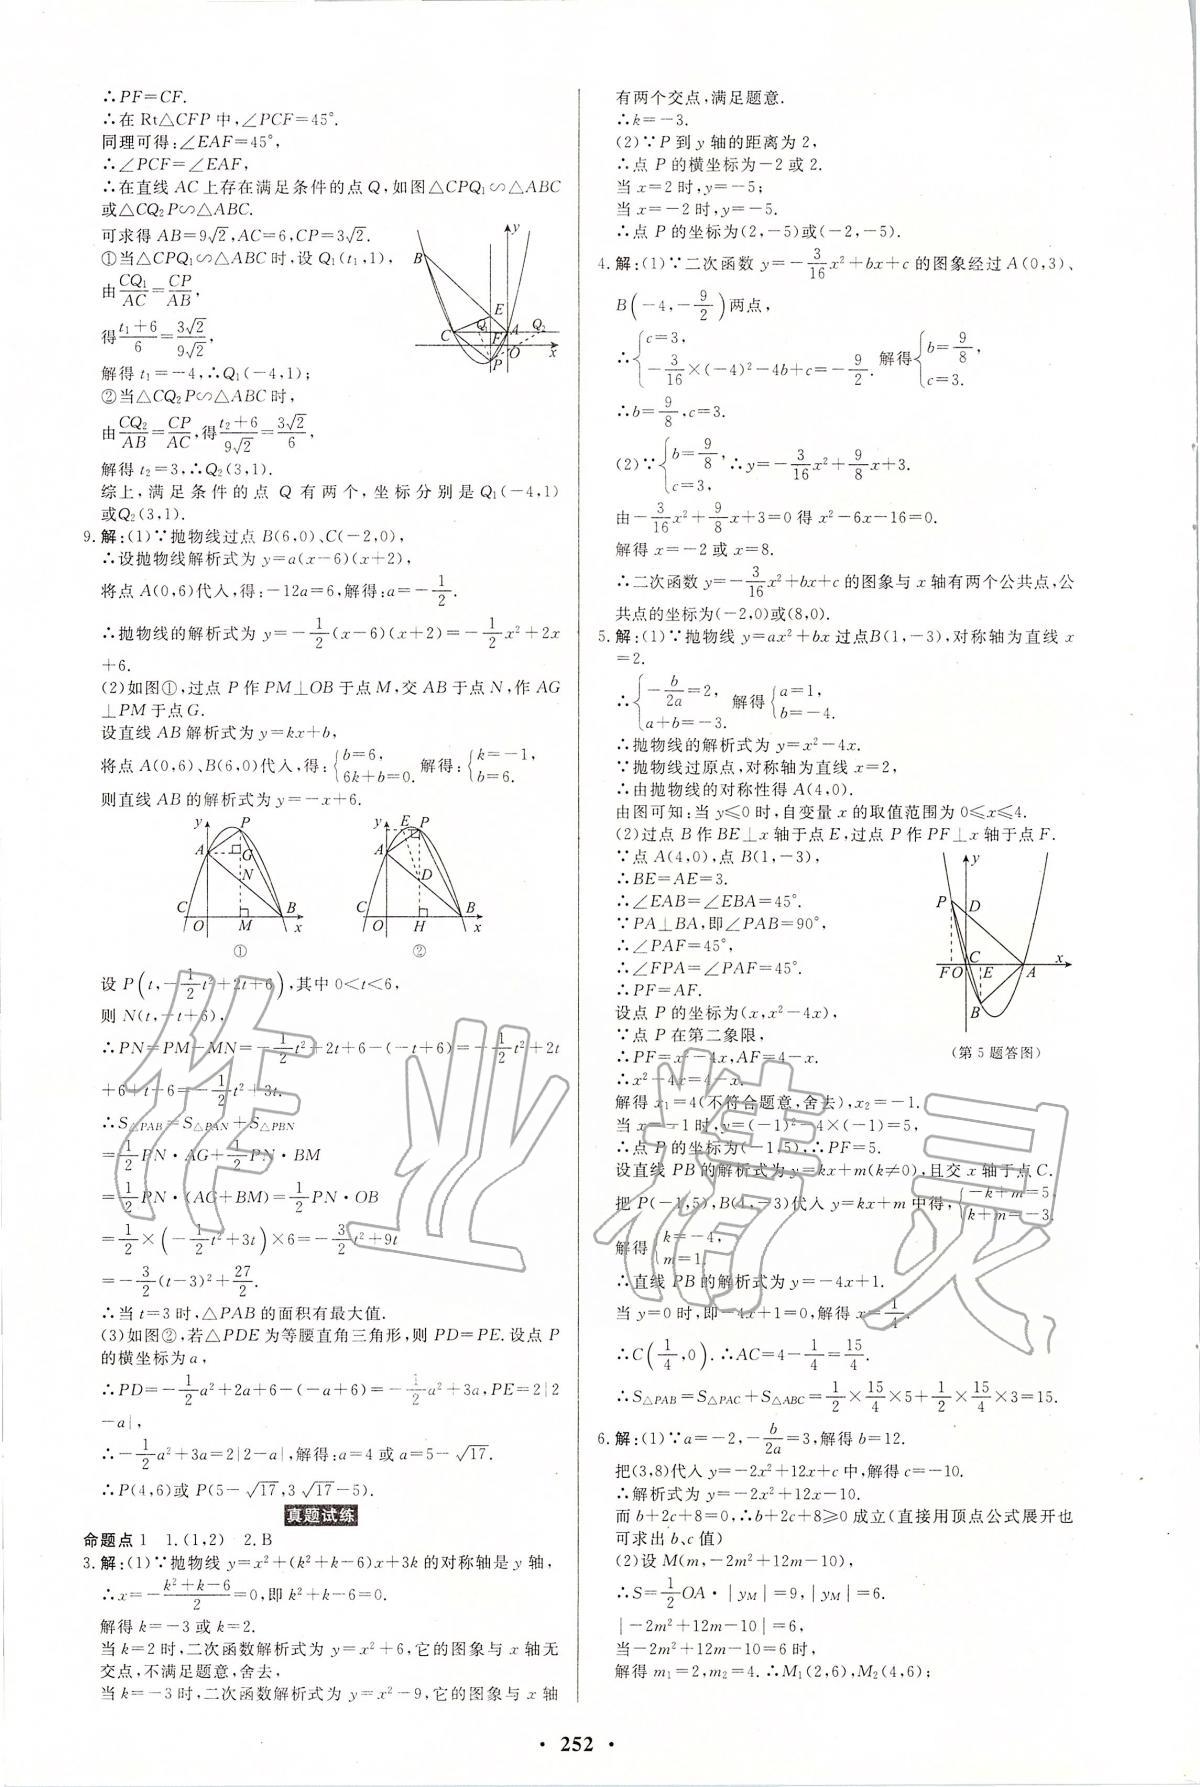 ∴PF=CF.
∴在 Rt△CFP 中,∠PCF=45°.
同理可得:∠EAF=45°,
∴∠PCF=∠EAF,
∴在直线 AC 上存在满足条件的点 Q,如图△CPQ₁∽△ABC
或△CQ₂P∽△ABC.
可求得 AB=9√2,AC=6,CP=3√2.
①当△CPQ₁∽△ABC 时,设 Q₁(t₁,1),
由 CQ₁/AC=CP/AB,
得 (t₁+6)/6=3√2/9√2,
解得 t₁=-4,∴Q₁(-4,1);
②当△CQ₂P∽△ABC 时,
由 CQ₂/AB=CP/AC,得 (t₂+6)/9√2=3√2/6,
解得 t₂=3,∴Q₂(3,1).
综上,满足条件的点 Q 有两个,坐标分别是 Q₁(-4,1)
或Q₂(3,1).
y B E C Q₁ F A Q₂ O x P
9.解:(1)∵抛物线过点 B(6,0)、C(-2,0),
∴设抛物线解析式为 y=a(x-6)(x+2),
将点 A(0,6)代入,得:-12a=6,解得:a=-1/2.
∴抛物线的解析式为 y=-1/2(x-6)(x+2)=-1/2x²+2x
+6.
(2)如图①,过点 P 作 PM⊥OB 于点 M,交 AB 于点 N,作 AG
⊥PM 于点 G.
设直线 AB 解析式为 y=kx+b,
将点 A(0,6)、B(6,0)代入,得:{b=6, 6k+b=0. 解得:{k=-1, b=6.
则直线 AB 的解析式为 y=-x+6.
y P A G N C O M B x ①
y E P A D C O H B x ②
设 P(t,-1/2t²+2t+6),其中 0<t<6,
则 N(t,-t+6),
∴PN=PM-MN=-1/2t²+2t+6-(-t+6)=-1/2t²+2t
+6+t-6=-1/2t²+3t.
∴S△PAB=S△PAN+S△PBN
=1/2PN·AG+1/2PN·BM
=1/2PN·(AG+BM)=1/2PN·OB
=1/2×(-1/2t²+3t)×6=-3/2t²+9t
=-3/2(t-3)²+27/2.
∴当 t=3 时,△PAB 的面积有最大值.
(3)如图②,若△PDE 为等腰直角三角形,则 PD=PE.设点 P
的横坐标为 a,
∴PD=-1/2a²+2a+6-(-a+6)=-1/2a²+3a,PE=2|2
-a|,
∴-1/2a²+3a=2|2-a|,解得:a=4 或 a=5-√17.
∴P(4,6)或 P(5-√17,3√17-5).
真题试练
命题点 1 1.(1,2) 2.B
3.解:(1)∵抛物线 y=x²+(k²+k-6)x+3k 的对称轴是 y 轴,
∴x=-(k²+k-6)/2=0,即 k²+k-6=0.
解得 k=-3 或 k=2.
当 k=2 时,二次函数解析式为 y=x²+6,它的图象与 x 轴无
交点,不满足题意,舍去,
当 k=-3 时,二次函数解析式为 y=x²-9,它的图象与 x 轴
有两个交点,满足题意.
∴k=-3.
(2)∵P 到 y 轴的距离为 2,
∴点 P 的横坐标为-2 或 2.
当 x=2 时,y=-5;
当 x=-2 时,y=-5.
∴点 P 的坐标为(2,-5)或(-2,-5).
4.解:(1)∵二次函数 y=-3/16x²+bx+c 的图象经过 A(0,3)、
B(-4,-9/2)两点,
∴{c=3, -3/16×(-4)²-4b+c=-9/2. 解得{b=9/8, c=3.
∴b=9/8,c=3.
(2)∵{b=9/8, c=3, ∴y=-3/16x²+9/8x+3.
由-3/16x²+9/8x+3=0 得 x²-6x-16=0.
解得 x=-2 或 x=8.
∴二次函数 y=-3/16x²+bx+c 的图象与 x 轴有两个公共点,公
共点的坐标为(-2,0)或(8,0).
5.解:(1)∵抛物线 y=ax²+bx 过点B(1,-3),对称轴为直线 x
=2.
∴{-b/2a=2, a+b=-3. 解得{a=1, b=-4.
∴抛物线的解析式为 y=x²-4x.
∵抛物线过原点,对称轴为直线 x=2,
∴由抛物线的对称性得 A(4,0).
由图可知:当 y≤0 时,自变量 x 的取值范围为 0≤x≤4.
(2)过点 B 作 BE⊥x 轴于点 E,过点 P 作 PF⊥x 轴于点 F.
∵点 A(4,0),点 B(1,-3),
∴BE=AE=3.
∴∠EAB=∠EBA=45°.
∵PA⊥BA,即∠PAB=90°,
∴∠PAF=45°,
∴∠FPA=∠PAF=45°.
∴PF=AF.
设点 P 的坐标为(x,x²-4x),
∵点 P 在第二象限,
∴PF=x²-4x,AF=4-x.
∴x²-4x=4-x.
y P D C F O E A x B
(第 5 题答图)
解得 x₁=4(不符合题意,舍去),x₂=-1.
当 x=-1 时,y=(-1)²-4×(-1)=5,
∴点 P 的坐标为(-1,5),∴PF=5.
设直线 PB 的解析式为 y=kx+m(k≠0),且交 x 轴于点 C.
把 P(-1,5),B(1,-3)代入 y=kx+m 中得,{-k+m=5, k+m=-3.
解得{k=-4, m=1.
∴直线 PB 的解析式为 y=-4x+1.
当 y=0 时,即-4x+1=0,解得 x=1/4.
∴C(1/4,0).∴AC=4-1/4=15/4.
∴S△PAB=S△PAC+S△ABC=1/2×15/4×5+1/2×15/4×3=15.
6.解:(1)∵a=-2,-b/2a=3,解得 b=12.
把(3,8)代入 y=-2x²+12x+c 中,解得 c=-10.
∴解析式为 y=-2x²+12x-10.
而 b+2c+8=0,∴b+2c+8≥0 成立(直接用顶点公式展开也
可求出 b、c 值)
(2)设 M(m,-2m²+12m-10),
∴S=1/2OA·|yM|=9,|yM|=6.
|-2m²+12m-10|=6,
当-2m²+12m-10=6 时,
解得 m₁=2,m₂=4.∴M₁(2,6),M₂(4,6);
作业精灵
· 252 ·